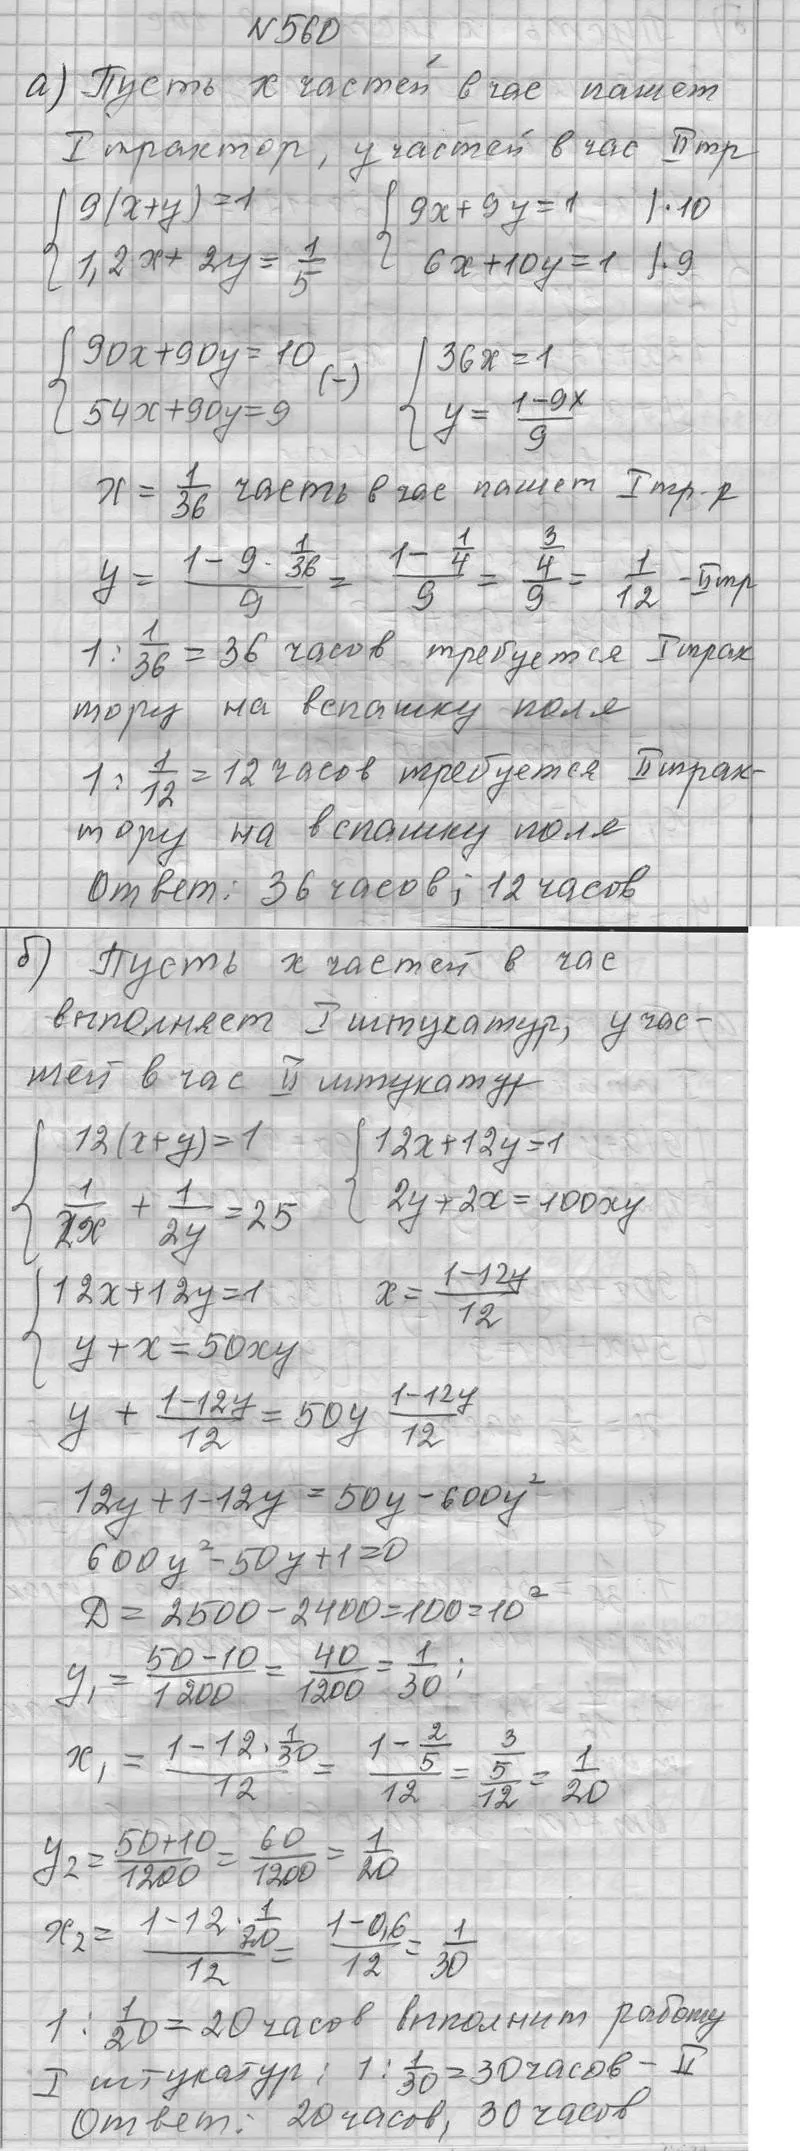 N560
а) Пусть x частей в час пашет
I трактор, y частей в час II тр
{ 9(x+y)=1 { 9x+9y=1 |·10
{ 1,2x+2y=1/5 { 6x+10y=1 |·9
{ 90x+90y=10 (-) { 36x=1
{ 54x+90y=9 { y=(1-9x)/9
x=1/36 часть в час пашет I тр-р
y=(1-9·1/36)/9=(1-1/4)/9=(3/4)/9=1/12 - II тр
1:1/36=36 часов требуется I трак
тору на вспашку поля
1:1/12=12 часов требуется II трак-
тору на вспашку поля
Ответ: 36 часов; 12 часов
б) Пусть x частей в час
выполняет I штукатур, y час-
тей в час II штукатур
{ 12(x+y)=1 { 12x+12y=1
{ 1/2x+1/2y=25 { 2y+2x=100xy
{ 12x+12y=1 x=(1-12y)/12
{ y+x=50xy
y+(1-12y)/12=50y (1-12y)/12
12y+1-12y=50y-600y²
600y²-50y+1=0
Д=2500-2400=100=10²
y₁=(50-10)/1200=40/1200=1/30;
x₁=(1-12·1/30)/12=(1-2/5)/12=(3/5)/12=1/20
y₂=(50+10)/1200=60/1200=1/20
x₂=(1-12·1/20)/12=(1-0,6)/12=1/30
1:1/20=20 часов выполнит работу
I штукатур; 1:1/30=30 часов - II
Ответ: 20 часов, 30 часов